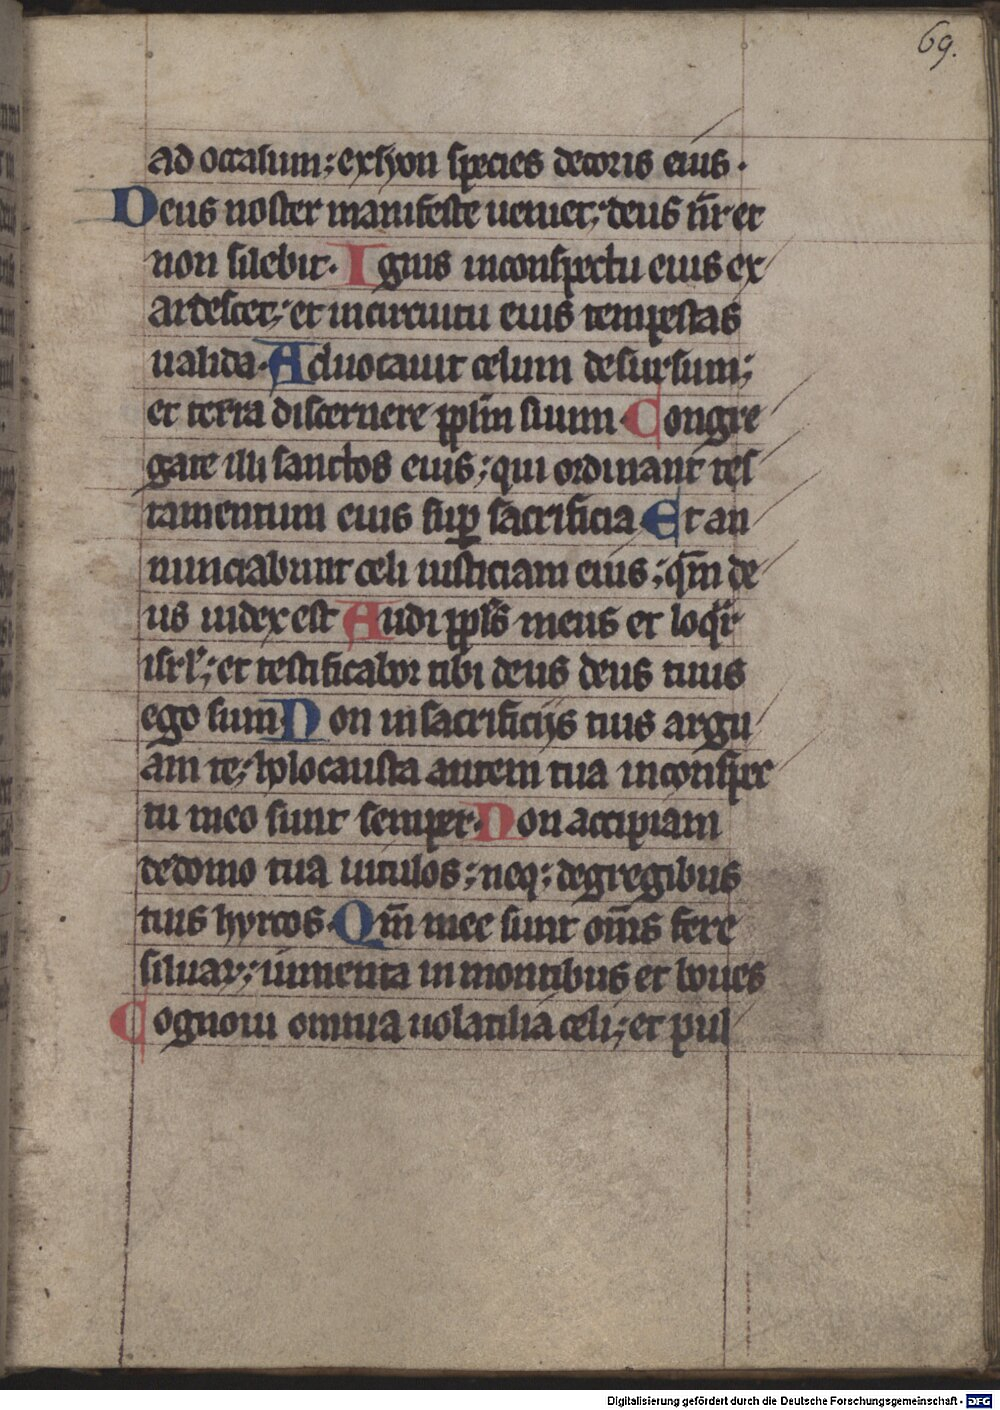 69.
ad occasum; exsyon species decoris eius.
Deus noster manifeste ueniet; deus nr̄ et
non silebit. Ignis inconspectu eius ex
ardescet; et incircuitu eius tempestas
ualida. Aduocauit celum desursum;
et terra discernere ppl̄m suum. Congre
gate illi sanctos eius; qui ordinant tes
tamentum eius suꝑ sacrificia Et an
nunciabunt celi iusticiam eius; qm̄ de
us iudex est Audi ppl̄s meus et loqr̄
isrl̄; et testificabor tibi deus deus tuus
ego sum Non insacrificijs tuis argu
am te; holocausta autem tua inconspec
tu meo sunt semper. Non accipiam
dedomo tua uitulos; neq; degregibus
tuis hyrcos. Qm̄ mee sunt om̄s fere
siluaꝝ; iumenta inmontibus et boues
Cognoui omnia uolatilia celi; et pul
Digitalisierung gefördert durch die Deutsche Forschungsgemeinschaft - DFG